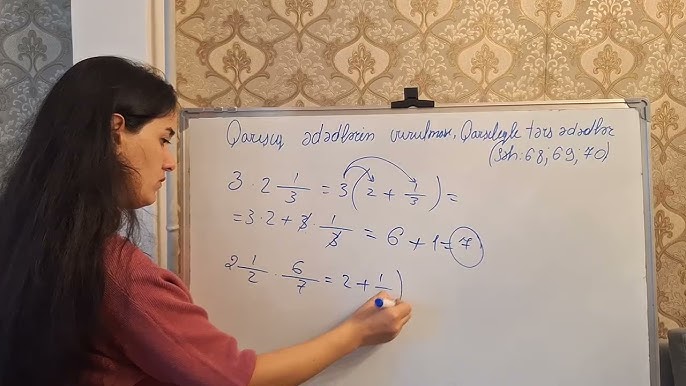 Qarışıq ədədlərin vurulması, Qarşılıqlı tərs ədədlər
(səh: 68; 69; 70)
3 · 2 1/3 = 3 (2 + 1/3) =
= 3 · 2 + 3 · 1/3 = 6 + 1 = 7
2 1/2 · 6/7 = 2 + 1/ )